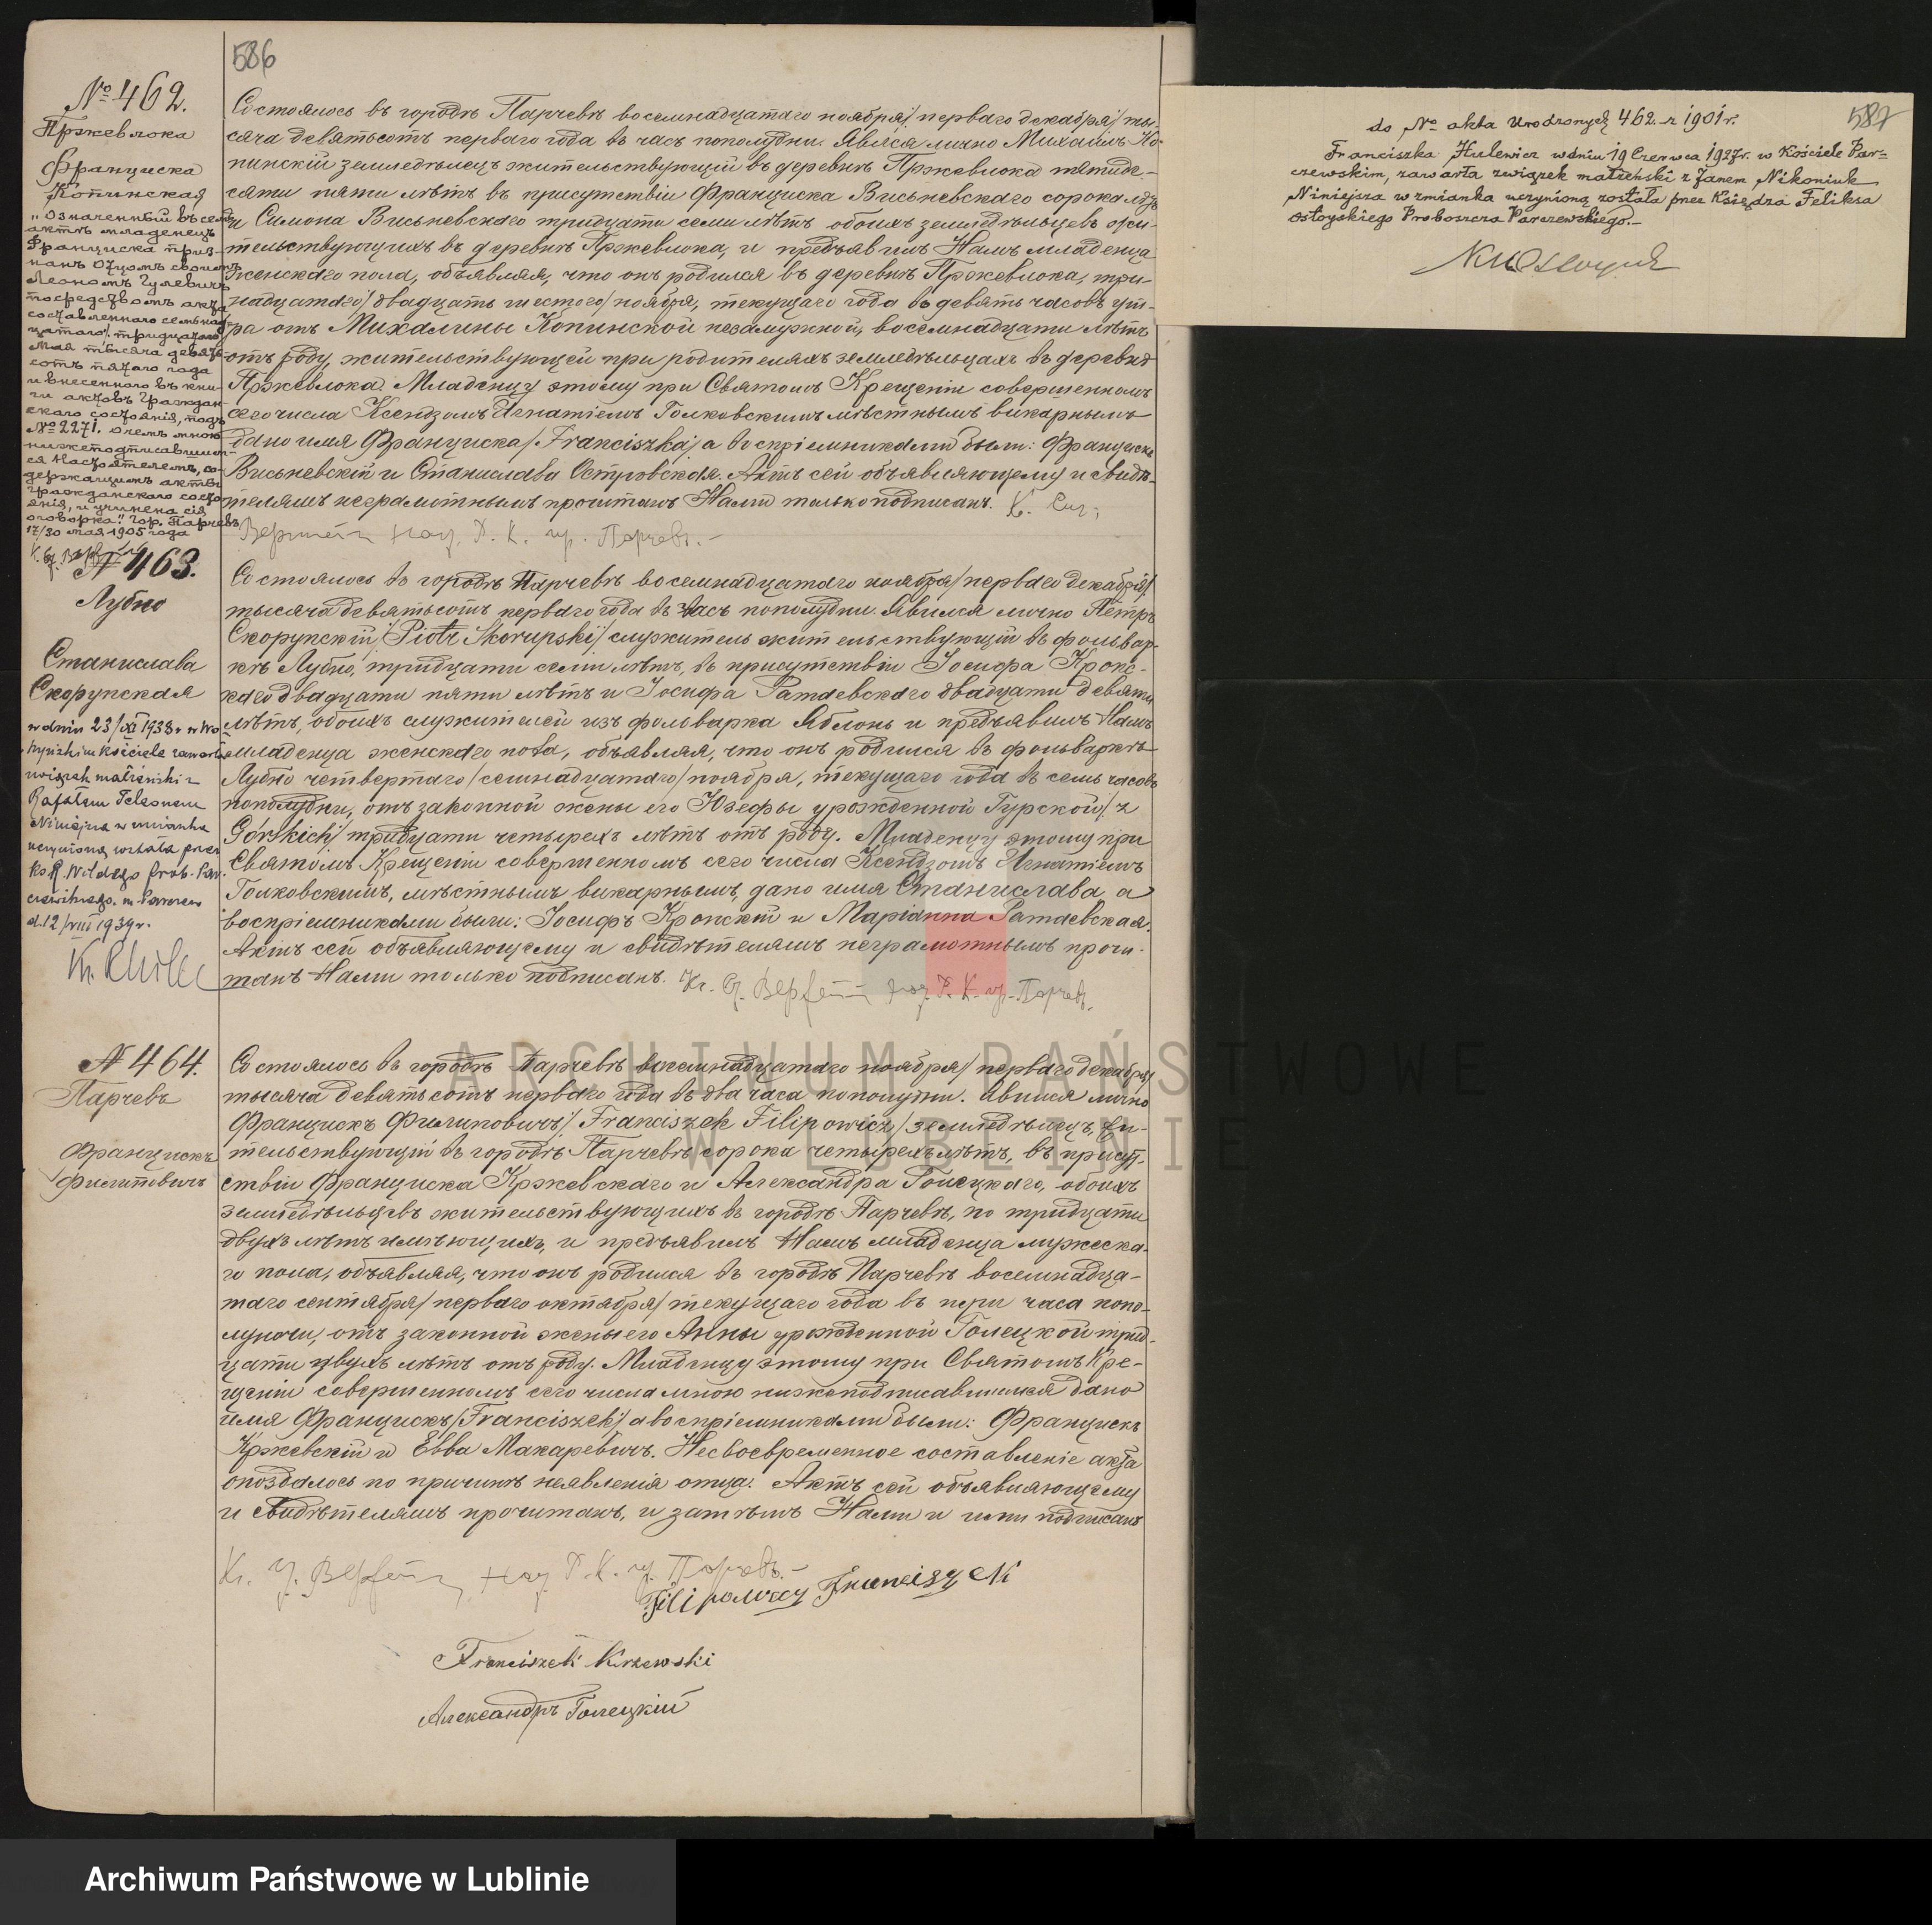 586
№ 462.
Пржевлока
Франциска
Копинская
„Означенный въ семъ
актѣ младенецъ
Франциска приз-
нанъ Отцомъ своимъ
Леономъ Гулевичъ
посредствомъ акта
составленнаго семьнад-
цатаго/тридцатаго/
Мая тысяча девять-
сотъ пятаго года
и внесеннаго въ кни-
ги актовъ Граждан-
скаго состоянія, подъ
№ 2271. О чемъ мною
нижеподписавшим-
ся Настоятелемъ, со-
держащимъ акты
гражданскаго состо-
янія, и учинена сія
оговорка." Гор. Парчевъ
17/30 мая 1905 года
Состоялось въ городѣ Парчевѣ восемнадцатаго ноября/перваго декабря/ ты-
сяча девятьсотъ перваго года въ часъ пополудни. Явился лично Михаилъ Ко-
пинскій земледѣлецъ жительствующій въ деревнѣ Пржевлока пятиде-
сяти пяти лѣтъ въ присутствіи Франциска Висьневскаго сорока лѣтъ
и Симона Висьневскаго тридцати семи лѣтъ обоихъ земледѣльцевъ жи-
тельствующихъ въ деревнѣ Пржевлока, и предъявилъ Намъ младенца
женскаго пола, объявляя, что онъ родился въ деревнѣ Пржевлока, три-
надцатаго/двадцать шестого/ноября, текущаго года въ девять часовъ ут-
ра отъ Михалины Копинской незамужной, восемнадцати лѣтъ
отъ роду, жительствующей при родителяхъ земледѣльцахъ въ деревнѣ
Пржевлока. Младенцу этому при Святомъ Крещеніи совершенномъ
сего числа Ксендзомъ Игнатіемъ Голковскимъ мѣстнымъ викарнымъ
дано имя Франциска/Franciszka/ а воспріемниками были: Францискъ
Висьневскій и Станислава Островская. Актъ сей объявляющему и свидѣ-
телямъ неграмотнымъ прочитанъ Нами только подписанъ.
№ 463.
Лубно
Станислава
Скорупская
w dniu 23/XI 1938 r w Wo
hyńskim kościele zawarła
związek małżeński z
Rafałem Telesonem
Niniejsza wzmianka
uczyniona została przez
Ks R. Wildego Prob. Par.
czewskiego. w Parczew
d. 12/VIII 1939 r.
Состоялось въ городѣ Парчевѣ восемнадцатаго ноября/перваго декабря/
тысяча девятьсотъ перваго года въ часъ пополудни. Явился лично Петръ
Скорупскій/Piotr Skorupski/ служитель жительствующій въ фольвар-
кѣ Лубно, тридцати семи лѣтъ, въ присутствіи Іосифа Кропс-
каго двадцати пяти лѣтъ и Іосифа Ратаевскаго двадцати девяти
лѣтъ, обоихъ служителей изъ фольварка Яблонь и предъявилъ Намъ
младенца женскаго пола, объявляя, что онъ родился въ фольваркѣ
Лубно четвертаго/семнадцатаго/ноября, текущаго года въ семь часовъ
пополудни, отъ законной жены его Юзефы урожденной Гурской/z
Górskich/ тридцати четырехъ лѣтъ отъ роду. Младенцу этому при
Святомъ Крещеніи совершенномъ сего числа Ксендзомъ Игнатіемъ
Голковскимъ, мѣстнымъ викарнымъ, дано имя Станислава, а
воспріемниками были: Іосифъ Кропскій и Маріанна Ратаевская.
Актъ сей объявляющему и свидѣтелямъ неграмотнымъ прочи-
танъ Нами только подписанъ.
№ 464.
Парчевъ
Францискъ
Филиповичъ
Состоялось въ городѣ Парчевѣ восемнадцатаго ноября/перваго декабря/
тысяча девятьсотъ перваго года въ два часа пополудни. Явился лично
Францискъ Филиповичъ/Franciszek Filipowicz/ земледѣлецъ, жи-
тельствующій въ городѣ Парчевѣ, сорока четырехъ лѣтъ, въ присут-
ствіи Франциска Кржевскаго и Александра Голецкаго, обоихъ
земледѣльцевъ жительствующихъ въ городѣ Парчевѣ, по тридцати
двухъ лѣтъ имѣющихъ, и предъявилъ Намъ младенца мужеска-
го пола, объявляя, что онъ родился въ городѣ Парчевѣ восемнадца-
таго сентября/перваго октября/текущаго года въ три часа попо-
луночи, отъ законной жены его Анны урожденной Голецкой трид-
цати двухъ лѣтъ отъ роду. Младенцу этому при Святомъ Кре-
щеніи совершенномъ сего числа мною нижеподписавшимся дано
имя Францискъ/Franciszek/ а воспріемниками были: Францискъ
Кржевскій и Евва Макаревичъ. Несвоевременное составленіе акта
опоздалось по причинѣ неявленія отца. Актъ сей объявляющему
и свидѣтелямъ прочитанъ, и затѣмъ Нами и ими подписанъ
Filipowicz Franciszek
Franciszek Krzewski
Александръ Голецкій
587
do № akta Urodzonych 462 z 1901 r.
Franciszka Hulewicz w dniu 19 Czerwca 1927 r. w Kościele Par=
czewskim, zawarła związek małżeński z Janem Nikoniuk
Niniejsza wzmianka uczynioną została przez Księdza Feliksa
Ostoyskiego Proboszcza Parczewskiego.
ARCHIWUM PAŃSTWOWE
W LUBLINIE
Archiwum Państwowe w Lublinie